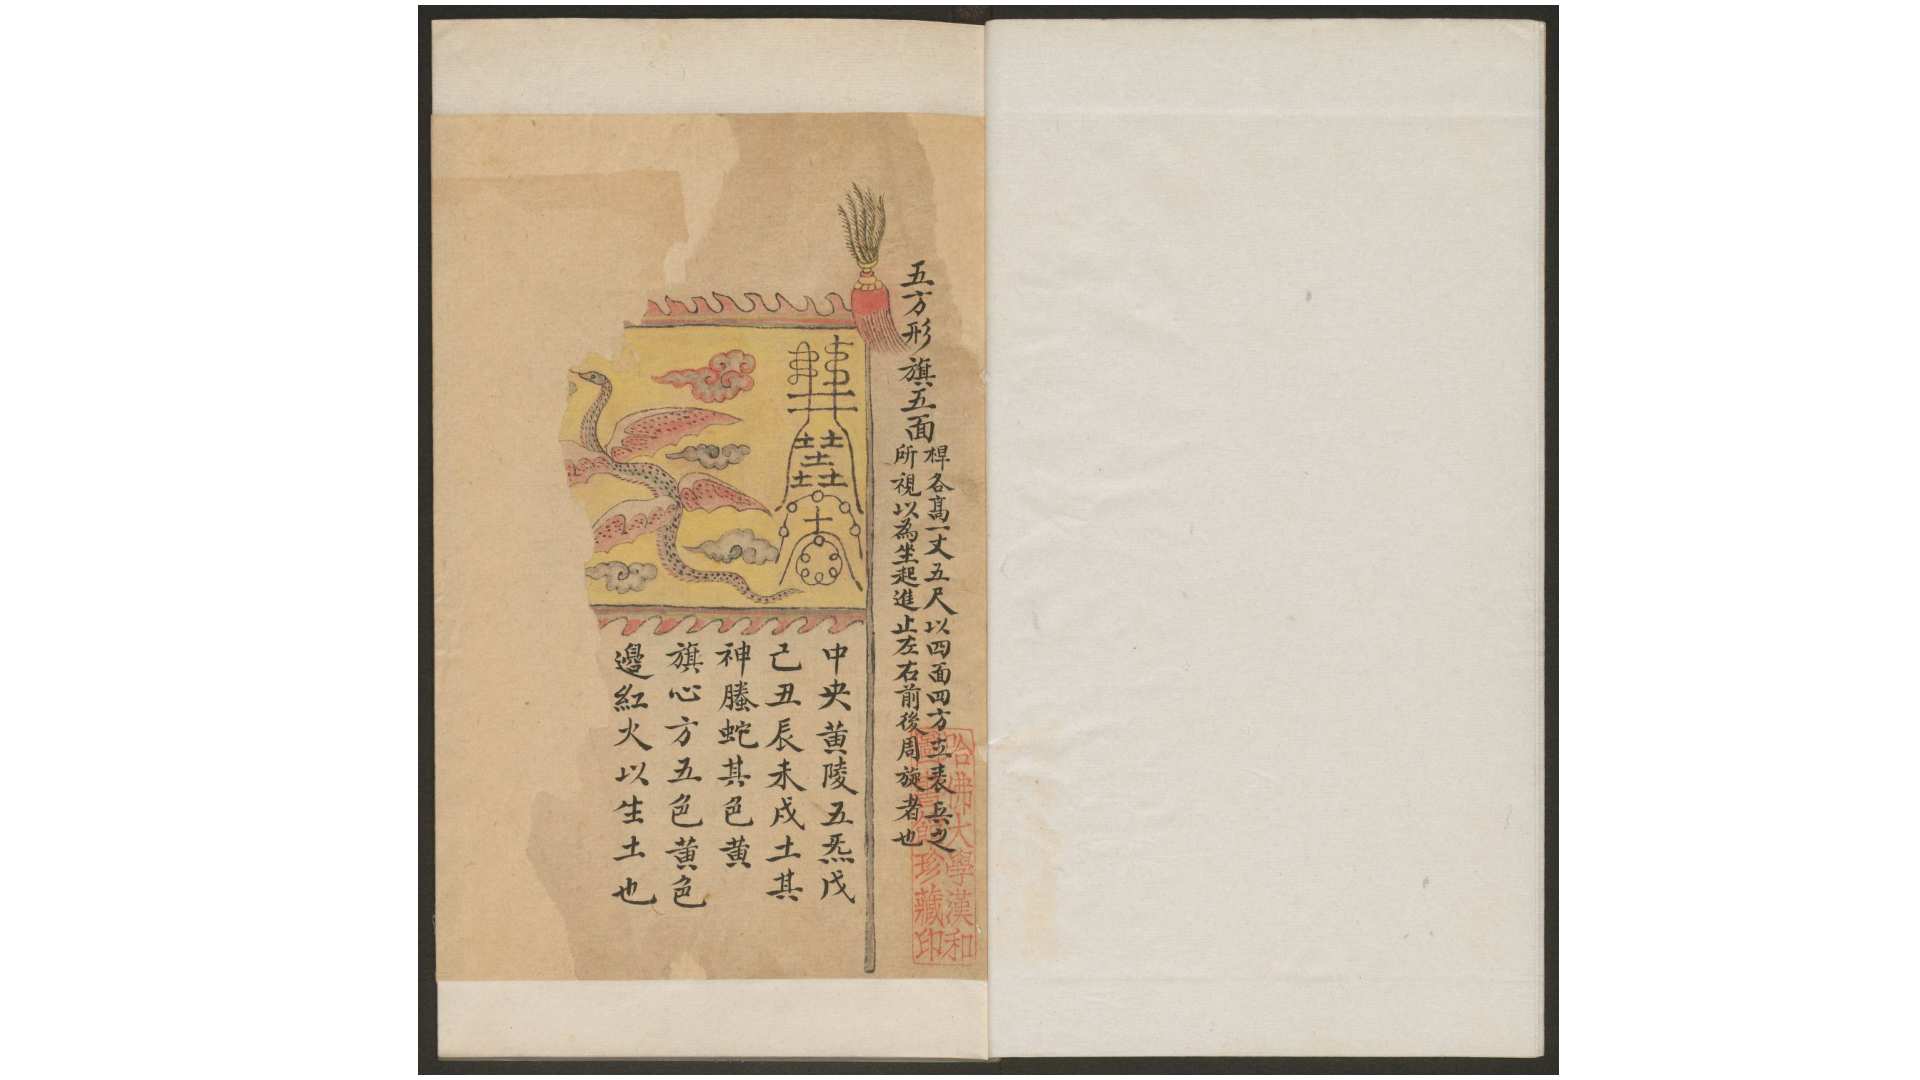 五方形旗五面
桿各髙一丈五尺以四面四方立表兵之
所視以為坐起進止左右前後周旋者也
哈佛大學漢和
圖書館珍藏印
土土
土
土土
中央黄陵五炁戊
己丑辰未戌土其
神螣蛇其色黄
旗心方五色黄色
邊紅火以生土也